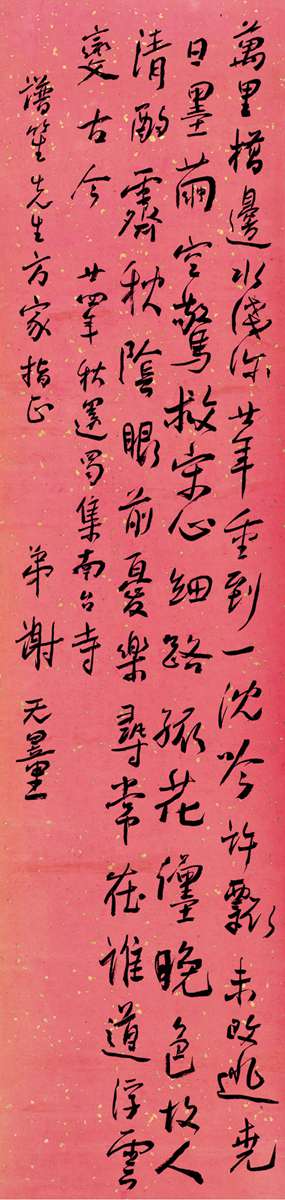 萬里橋邊水淺深廿年重到一沈吟許瓢未改逃堯
日墨繭空驚救宋心細路緣花晚色故人
清酌霽秋陰眼前憂樂尋常在誰道浮雲
變古今 廿四年秋還蜀集南台寺
譜笙先生方家指正 弟謝无量